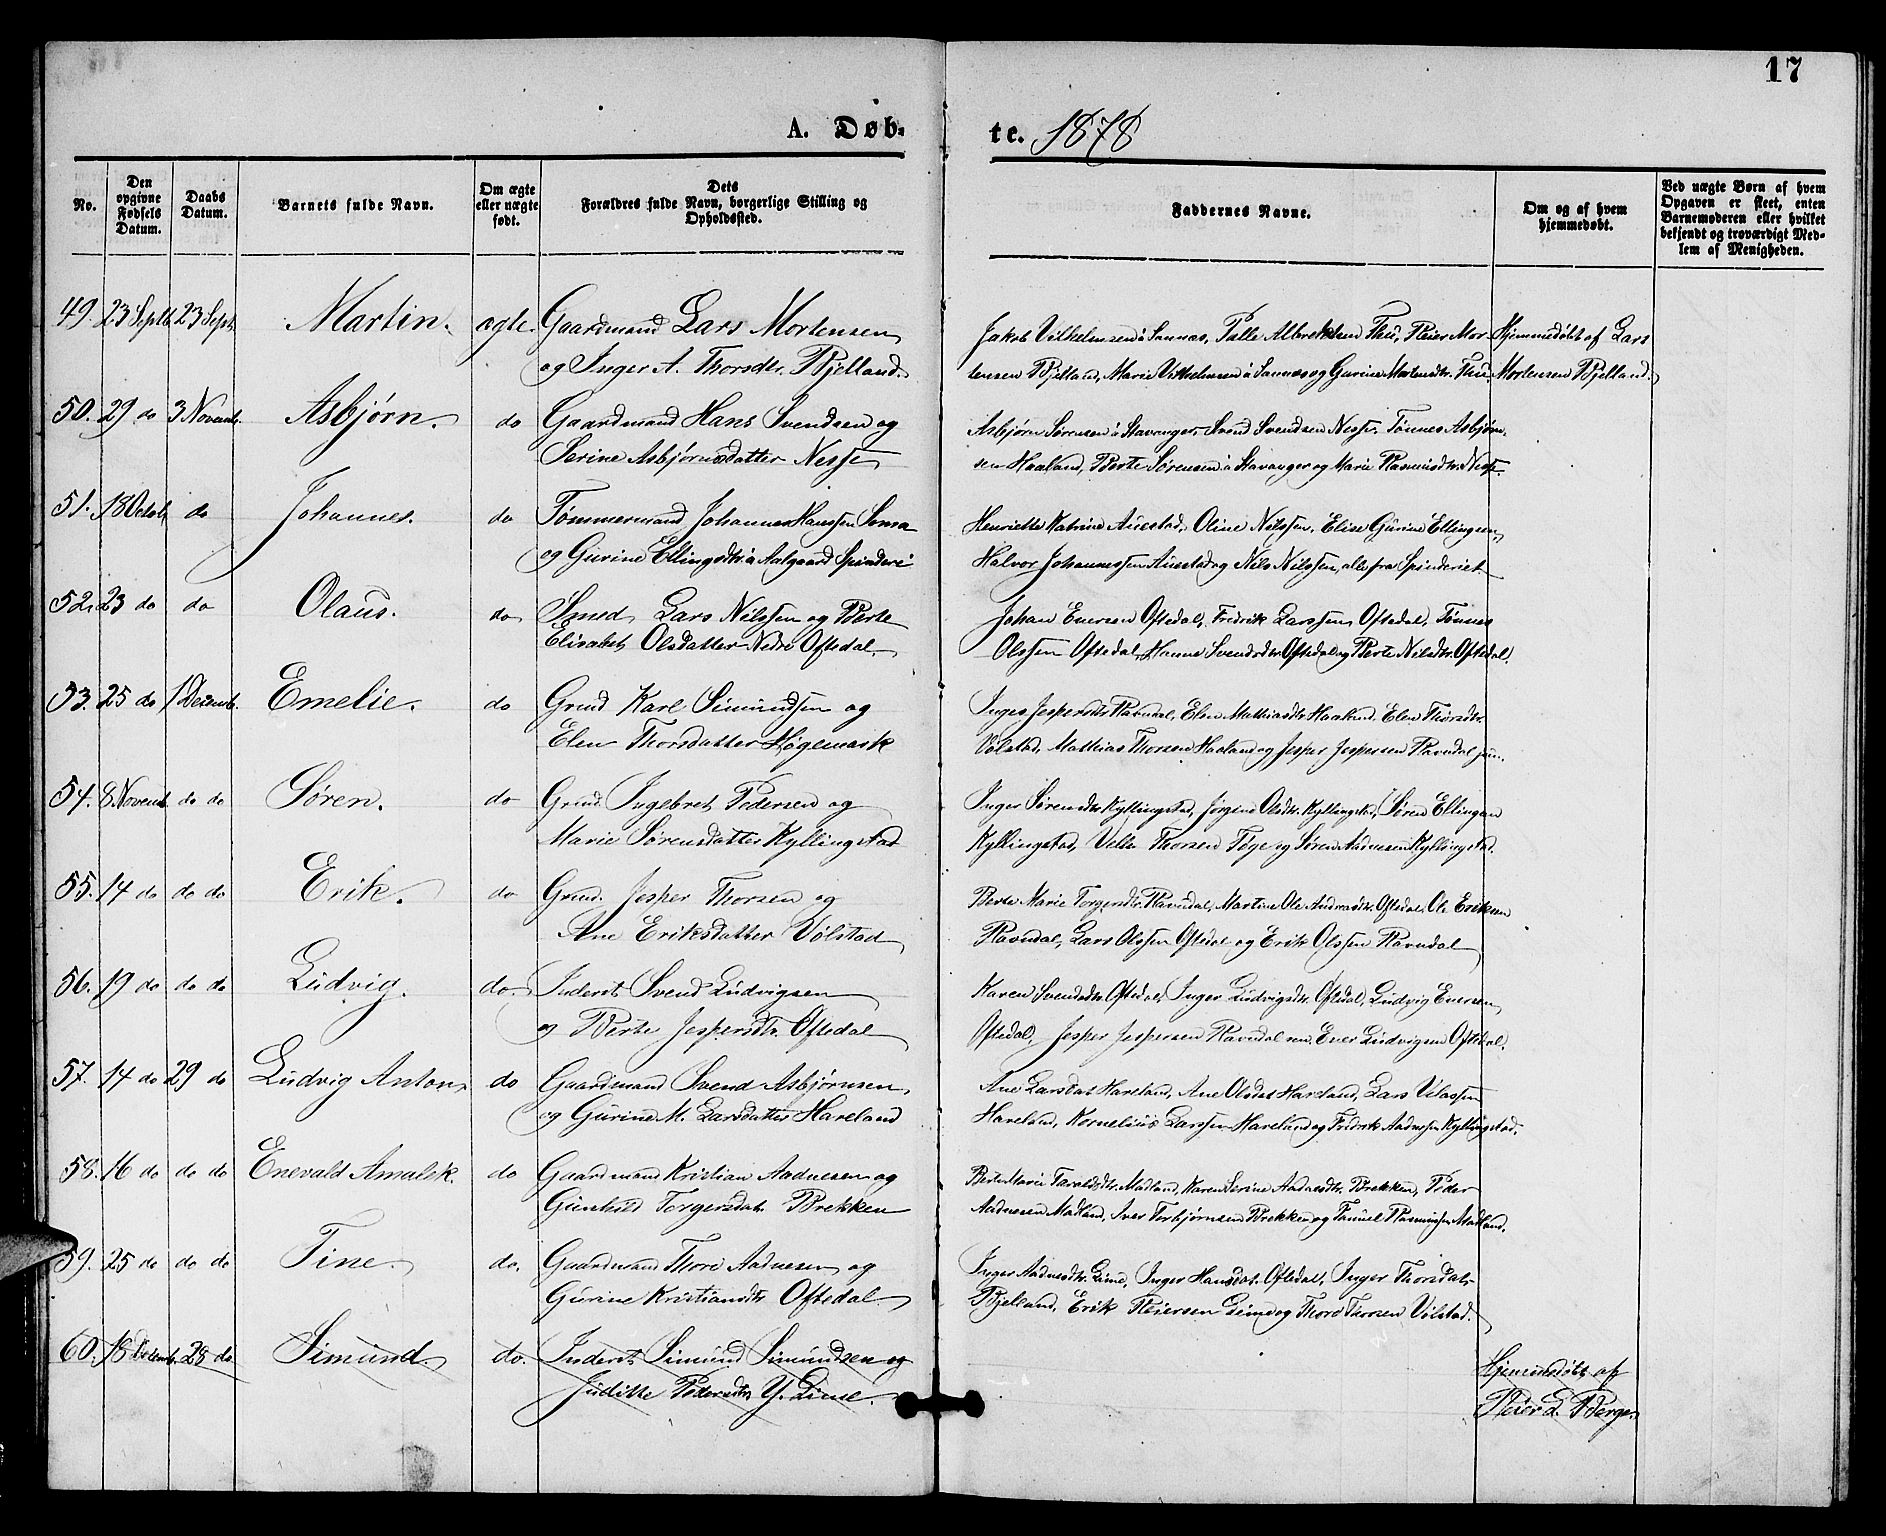 17
A. Døb-
te. 1878
No.
Den opgivne Fødsels Datum.
Daabs Datum.
Barnets fulde Navn.
Om ægte eller uægte født.
Dets Forældres fulde Navn, borgerlige Stilling og Opholdssted.
Faddernes Navne.
Om og af hvem hjemmedøbt.
Ved uægte Børn af hvem Opgaven er skeet, enten Barnemoderen eller hvilket bekjendt og troværdigt Medlem af Menigheden.
49. 23 Septb. 23 Sept. Martin. ægte. Gaardmand Lars Mortensen
og Inger A. Thorsdtr. Bjelland.
Jakob Vilhelmsen à Sannæs, Palle Albrektsen Thu, Reier Mor- Hjemmedøbt af Lars
tensen Bjelland, Marie Vilhelmsen à Sannæs og Gurine Mortensdtr. Thu. Mortensen Bjelland.
50. 29 do 3 Novemb. Asbjørn. do Gaardmand Hans Svendsen og
Serine Asbjørnsdatter Nesse
Asbjørn Sørensen à Stavanger, Svend Svendsen Nesse, Tønnes Asbjørn-
sen Haaland, Berte Sørensen à Stavanger og Marie Rasmusdtr. Nesse.
51. 18 Octob. do Johannes. do Tømmermand Johannes Hanssen Soma
og Gurine Ellingsdtr. à Aalgaard Spinderi
Henriette Katrine Auestad, Oline Nilssen, Elise Gurine Ellingsen,
Halvor Johannessen Auestad og Nils Nilssen, alle fra Spinderiet.
52. 23 do do Olaus. do Smed Lars Nilssen og Berte
Elisabet Olsdatter Nedre Oftedal.
Johan Enersen Oftedal, Fredrik Larssen Oftedal, Tønnes
Olssen Oftedal, Hanne Svendsdtr. Oftedal og Berte Nilsdtr. Oftedal.
53. 25 do 1 Decemb. Emelie. do Grmd Karl Simundsen og
Elen Thorsdatter Høgemark
Inger Jespersdtr. Ravndal, Elen Mathiasdtr. Haaland, Elen Thorsdtr.
Vølstad, Mathias Thorsen Haaland og Jesper Jespersen Ravndal jun.
54. 8 Novemb. do do Søren. do Grmd. Ingebret Pedersen og
Marie Sørensdatter Kyllingstad
Inger Sørensdtr. Kyllingstad, Jørgine Olsdtr. Kyllingstad, Søren Ellingsen
Kyllingstad, Thorsen og Søren Aadnesen Kyllingstad.
55. 14 do do do Erik. do Grmd. Jesper Thorsen og
Ane Eriksdatter Vølstad
Berte Marie Torgersdtr. Ravndal, Martine Ole Andreasdtr. Oftedal, Ole Eriksen
Ravndal, Lars Olssen Oftedal og Erik Olssen Ravndal
56. 19 do do do Ludvig. do. Inderst Svend Ludvigsen
og Berte Jespersdtr. Oftedal
Karen Svendsdtr. Oftedal, Inger Ludvigsdtr. Oftedal, Ludvig Enersen
Oftedal, Jesper Jespersen Ravndal sen. Ener Ludvigsen Oftedal.
57. 14 do 29 do Ludvig Anton, do Gaardmand Svend Asbjørnsen,
og Gurine M. Larsdatter Haveland
Ane Larsdat. Haveland, Ane Olsdat. Haveland, Lars Vilassen
Haveland, Kornelius Larssen Haveland og Fredrik Aadnesen Kyllingstad.
58. 16 do do do Enevald Amalek. do Gaardmand Kristian Aadnesen og
Gunhild Torgersdat. Brekken
Berte Marie Taraldsdtr. Madland, Karen Serine Aadnesdtr. Brekken, Peder
Aadnesen Madland, Iver Torbjørnsen Brekken og Samuel Rasmussen Madland.
59. 25 do do do Tine. do. Gaardmand Thore Aadnesen og
Gurine Kristiansdtr. Oftedal
Inger Aadnesdtr. Lime, Inger Hansdat. Oftedal, Inger Thorsdat.
Bjelland, Erik Reiersen Lime og Thore Thorsen Vølstad.
60. 18 Decemb. 28 do. Simund. do. Inderst Simund Simundsen og
Juditte Pedersdtr. Y. Lime.
Hjemmedøbt af
Reier L. Berge.